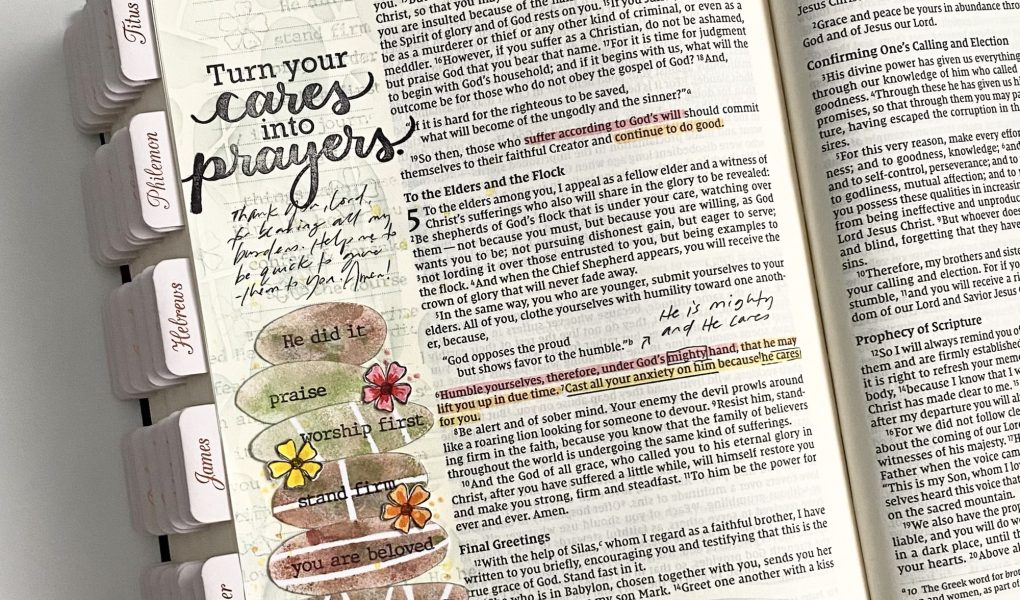 Titus
Philemon
Hebrews
James
er
Turn your
cares
into
prayers.
Thank You, Lord,
for bearing all my
burdens. Help me to
be quick to give
them to You. Amen!
He did it
praise
worship first
stand firm
you are beloved
Christ, so that you may
you are insulted because of the
the Spirit of glory and of God rests on you. ¹⁵If you suffer, it should not
be as a murderer or thief or any other kind of criminal, or even as a
meddler. ¹⁶However, if you suffer as a Christian, do not be ashamed,
but praise God that you bear that name. ¹⁷For it is time for judgment
to begin with God's household; and if it begins with us, what will the
outcome be for those who do not obey the gospel of God? ¹⁸And,
"If it is hard for the righteous to be saved,
what will become of the ungodly and the sinner?"ᵃ
¹⁹So then, those who suffer according to God's will should commit
themselves to their faithful Creator and continue to do good.
To the Elders and the Flock
5 To the elders among you, I appeal as a fellow elder and a witness of
Christ's sufferings who also will share in the glory to be revealed:
²Be shepherds of God's flock that is under your care, watching over
them — not because you must, but because you are willing, as God
wants you to be; not pursuing dishonest gain, but eager to serve;
³not lording it over those entrusted to you, but being examples to
the flock. ⁴And when the Chief Shepherd appears, you will receive the
crown of glory that will never fade away.
⁵In the same way, you who are younger, submit yourselves to your
elders. All of you, clothe yourselves with humility toward one anoth-
er, because,
He is mighty
and He cares
"God opposes the proud
but shows favor to the humble."ᵇ
⁶Humble yourselves, therefore, under God's mighty hand, that he may
lift you up in due time. ⁷Cast all your anxiety on him because he cares
for you.
⁸Be alert and of sober mind. Your enemy the devil prowls around
like a roaring lion looking for someone to devour. ⁹Resist him, stand-
ing firm in the faith, because you know that the family of believers
throughout the world is undergoing the same kind of sufferings.
¹⁰And the God of all grace, who called you to his eternal glory in
Christ, after you have suffered a little while, will himself restore you
and make you strong, firm and steadfast. ¹¹To him be the power for
ever and ever. Amen.
Final Greetings
¹²With the help of Silas,ᶜ whom I regard as a faithful brother, I have
written to you briefly, encouraging you and testifying that this is the
true grace of God. Stand fast in it.
who is in Babylon, chosen together with you, sends you her
my son Mark. ¹⁴Greet one another with a kiss
Jesus Christ
²Grace and peace be yours in abundance
God and of Jesus our Lord.
Confirming One's Calling and Election
³His divine power has given us everything
through our knowledge of him who called
goodness. ⁴Through these he has given us
promises, so that through them you may
ture, having escaped the corruption in
sires.
⁵For this very reason, make every effort
ness; and to goodness, knowledge; ⁶and
and to self-control, perseverance; and to
to godliness, mutual affection; and to
you possess these qualities in increasing
from being ineffective and
Lord Jesus Christ. ⁹But whoever does
and blind, forgetting that they have
sins.
¹⁰Therefore, my brothers and
your calling and election. For if
stumble, ¹¹and you will receive a
dom of our Lord and Savior Jesus
Prophecy of Scripture
¹²So I will always remind you
them and are firmly established
it is right to refresh your
body, ¹⁴because I know that I
Christ has made clear to me.
after my departure you will
¹⁶For we did not follow
about the coming of our Lord
witnesses of his majesty.
Father when the voice came
"This is my Son, whom I
selves heard this voice that
on the sacred mountain.
¹⁹We also have the
liable, and you will do
in a dark place, until the
your hearts. ²⁰Above
ᵃ10 The Greek word for
and women, as part of